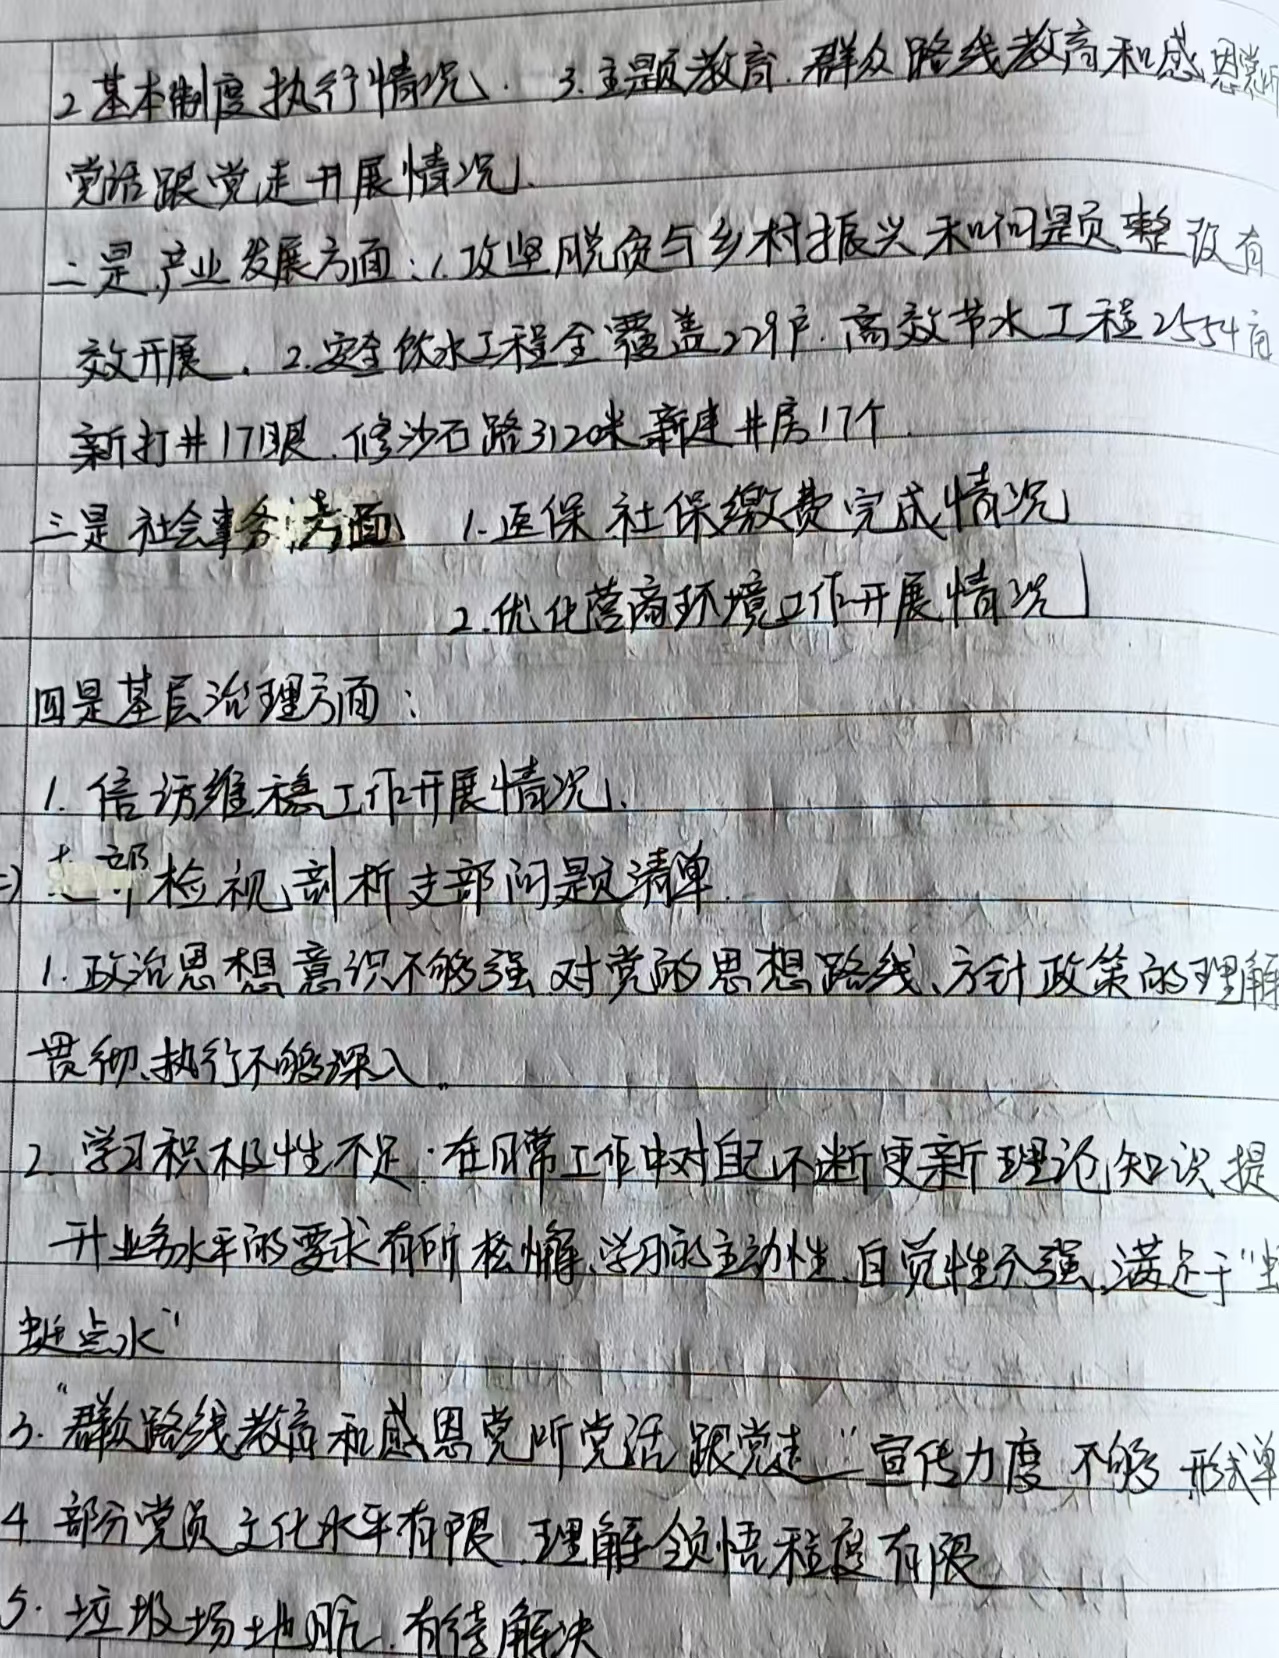 2 基本制度执行情况. 3.主题教育.群众路线教育和感恩党听
党话跟党走开展情况.
二是产业发展方面:1.攻坚脱贫与乡村振兴和问题整改有
效开展. 2.安全饮水工程全覆盖229户.高效节水工程2554亩
新打井17眼.修沙石路3120米新建井房17个.
三是社会事务方面 1.医保社保缴费完成情况
2.优化营商环境工作开展情况
四是基层治理方面:
1.信访维稳工作开展情况.
支部检视剖析支部问题清单.
1.政治思想意识不够强.对党的思想路线、方针政策的理解
贯彻、执行不够深入.
2.学习积极性不足:在日常工作中对自己不断更新理论知识提
升业务水平的要求有所松懈、学习的主动性、自觉性不强,满足于"蜻
蜓点水"
3."群众路线教育和感恩党听党话跟党走"宣传力度不够 形式单
4.部分党员文化水平有限.理解领悟程度有限
5.垃圾场地脏.有待解决